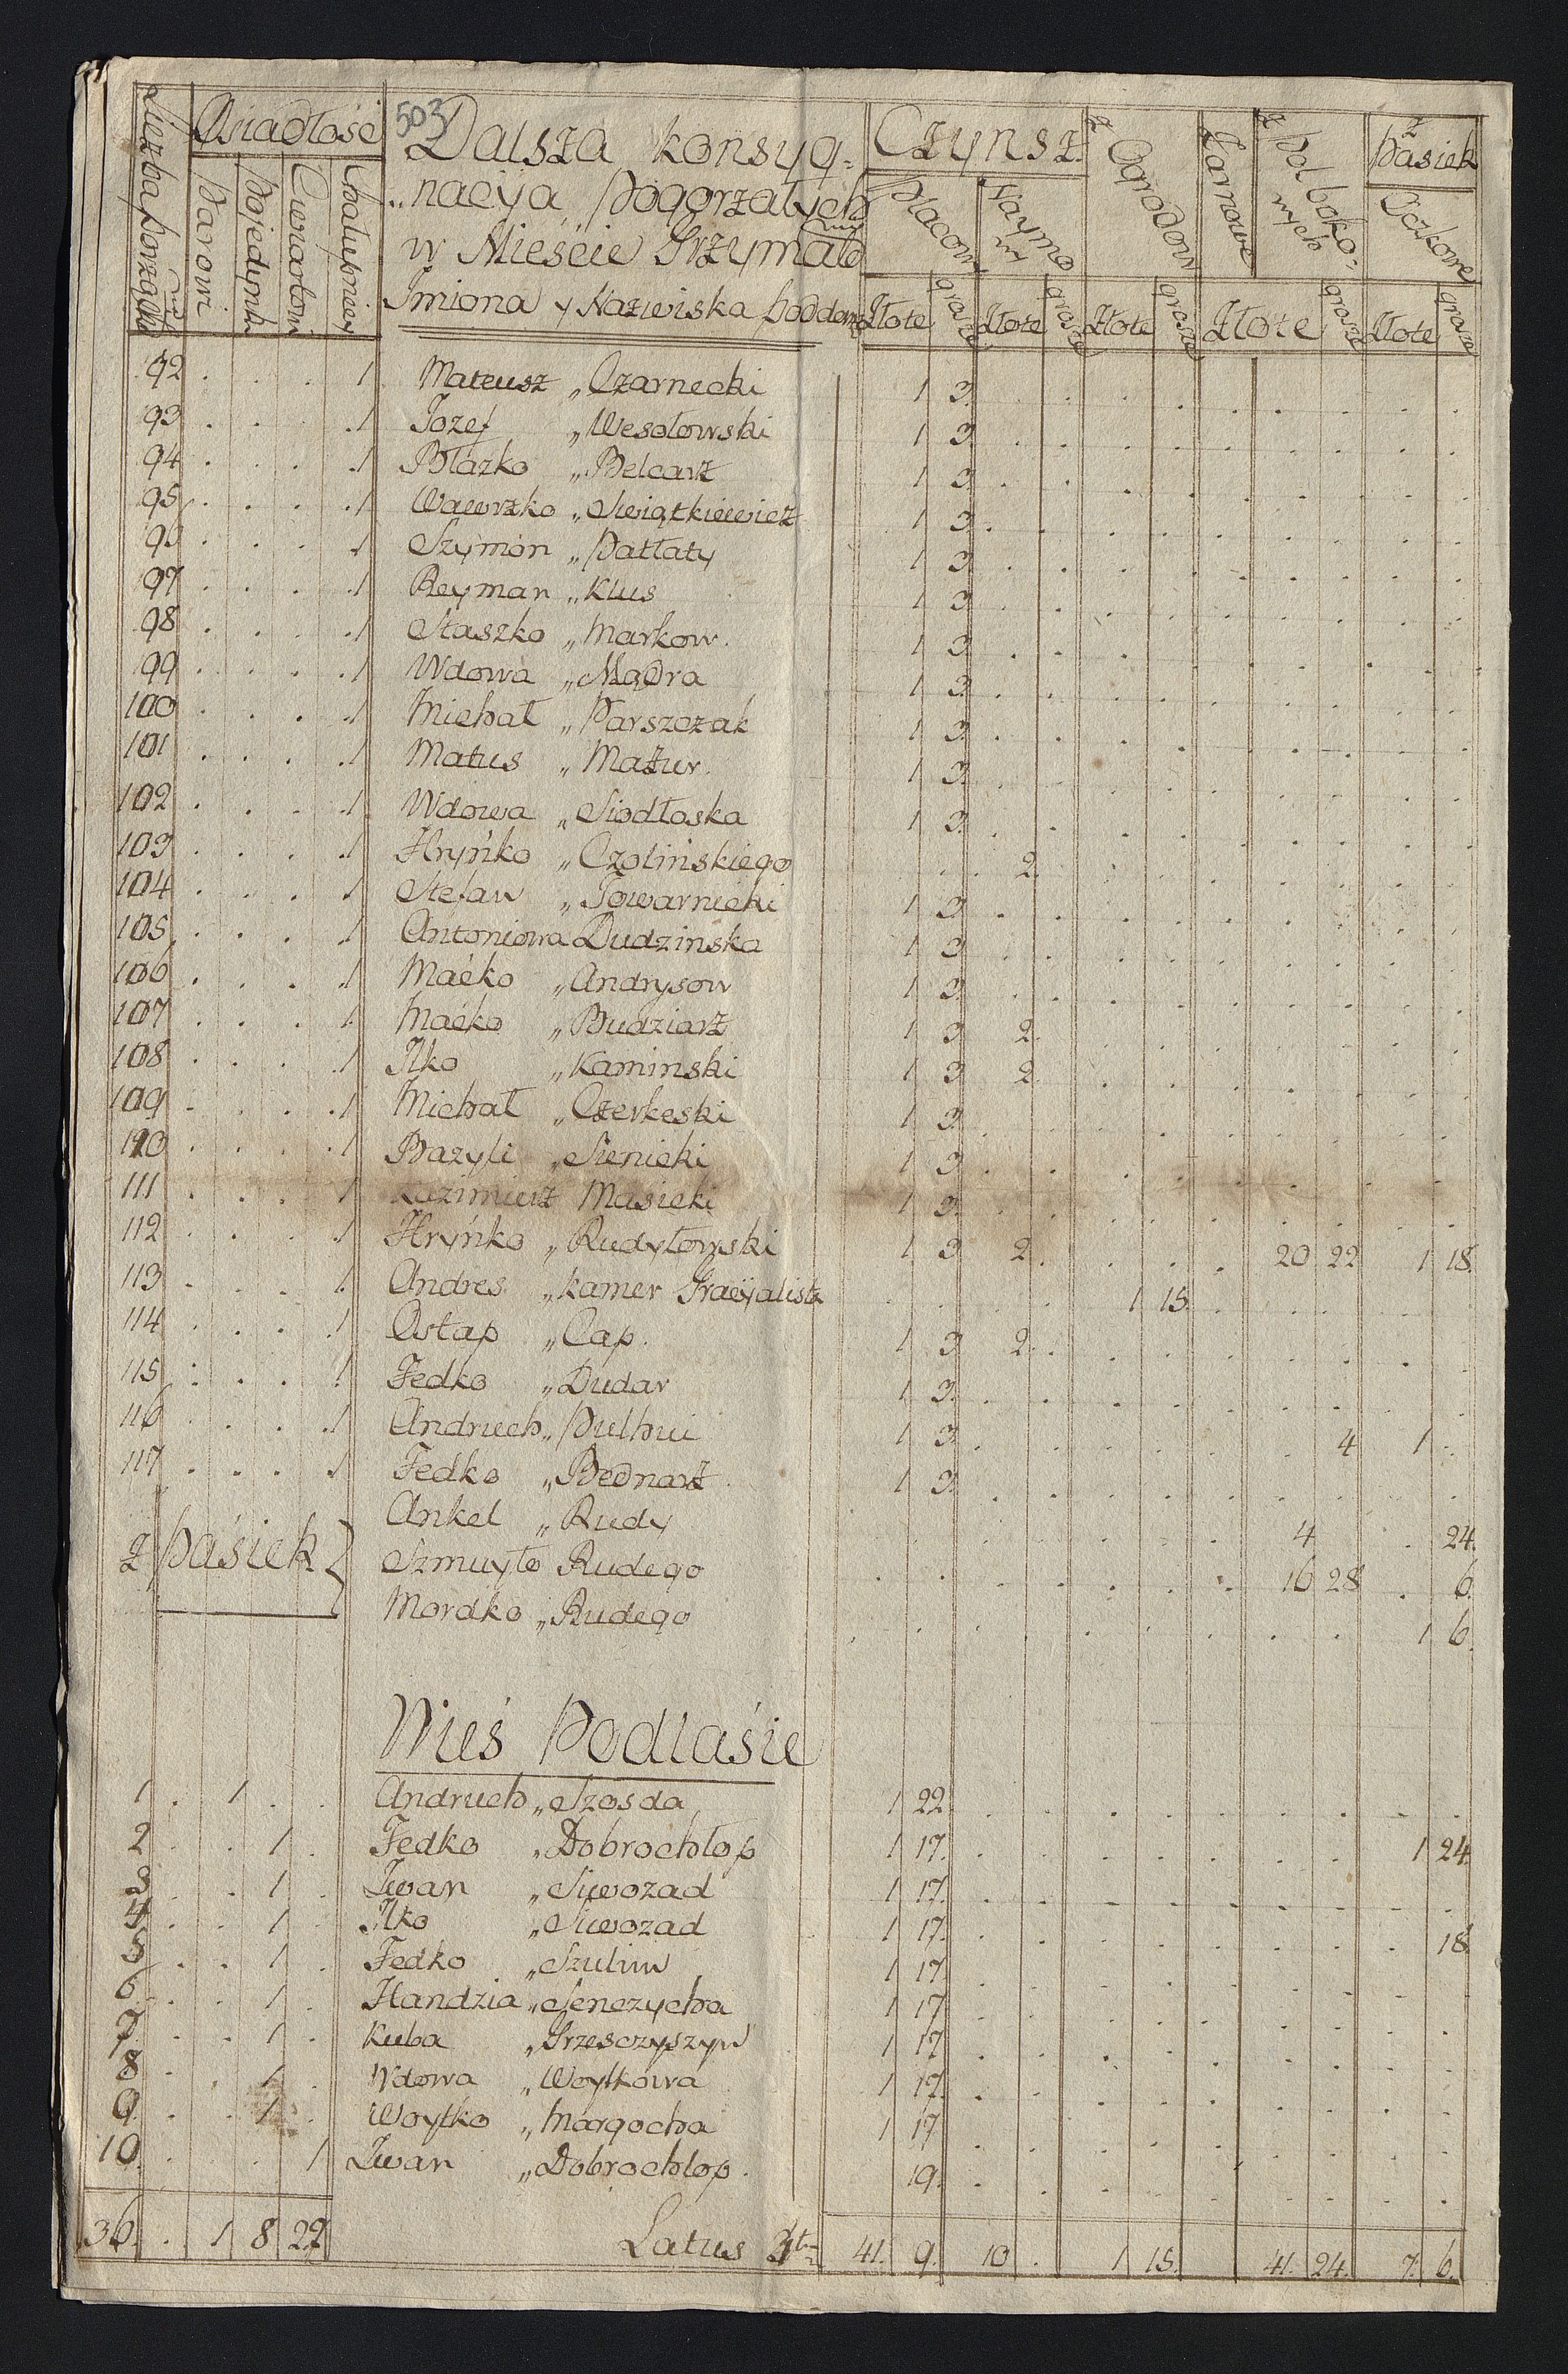 503
Liczba porządku
Osiadłość
Parowi
Pojedynki
Cwiartowi
Chałupnicy
Dalsza konsyg=
„nacya Pogorzałych
w Mieście Grzymało
Imiona y Nazwiska poddanych
Czynsz
Placowy
Naymo wy
z Ogrodow
Zarnowe
z Pól boko= wych
z Pasiek
Oczkowe
Złote grosze Złote grosze Złote grosze Złote grosze Złote grosze
92 . . . 1 Mateusz „Czarnecki 1 3.
93 . . . 1 Jozef „Wesołowski 1 3.
94 . . . 1 Błażko „Belcarz 1 3.
95 . . . 1 Wawrzko „Swiątkiewicz 1 3.
96 . . . 1 Szymon „Patłaty 1 3.
97 . . . 1 Reyman „Klus 1 3.
98 . . . 1 Staszko „Markow. 1 3.
99 . . . 1 Wdowa „Mądra 1 3.
100 . . . 1 Michał „Parszczak 1 3.
101 . . . 1 Matus „Mazur. 1 3.
102 . . . 1 Wdowa „Siodłoska 1 3.
103 . . . 1 Hryńko „Czolińskiego . . 2.
104 . . . 1 Stefan „Towarnicki 1 3.
105 . . . 1 Antoniowa Dudzinska 1 3.
106 . . . 1 Maćko „Andrysow 1 3.
107 . . . 1 Maćko „Budziarz 1 3 2.
108 . . . 1 Ilko „Kaminski 1 3 2.
109 . . . 1 Michał „Czerkeski 1 3.
110 . . . 1 Bazyli „Sienicki 1 3.
111 . . . 1 Kazimierz Masicki 1 3.
112 . . . 1 Hryńko „Rudyłowski 1 3 2. 20 22 1 18.
113 . . . 1 Andres „kamer Gracyalista 1 15.
114 . . . 1 Ostap „Cap. 1 3 2.
115 . . . 1 Fedko „Dudar 1 3.
116 . . . 1 Andruch „Pulhui 1 3. 4 1 .
117 . . . 1 Fedko „Bednarz 1 3.
z Pasiek
Ankel „Rudy 4 . . 24.
Szmuyło Rudego 16 28 . 6.
Mordko „Rudego 1 6.
Wieś Podlaśie
1 . 1 . . Andruch „Szosda 1 22.
2 . . 1 . Fedko „Dobrochłop 1 17. 1 24.
3 . . 1 . Iwan „Siwozad 1 17.
4 . . 1 . Ilko „Siwozad 1 17. 18
5 . . 1 . Fedko „Szuliw 1 17.
6 . . 1 . Handzia „Senczycha 1 17.
7 . . 1 . Kuba „Grzesczyszyn 1 17
8 . . 1 . Wdowa „Woytkowa 1 17.
9 . . 1 . Woytko „Margocha 1 17
10 . . . 1 Iwan „Dobrochlop. 19.
36. . 1 8 27 Latus 41. 9. 10 . 1 15. 41. 24. 7. 6.